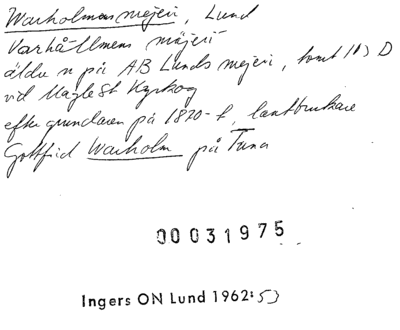 Warholmsmejeri, Lund
Varhå̂llmens mäjeri
äldre n på AB Lunds mejeri, tomt 103 D
vid Magle St Kyrkog
efter grundaren på 1870-t, lantbrukare
Gottfrid Warholm på Tuna
00031975
Ingers ON Lund 1962:53